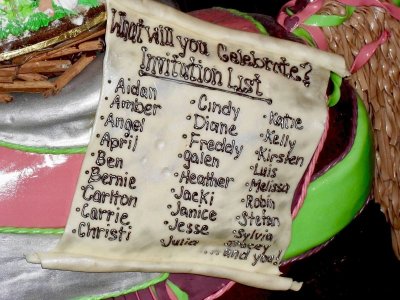 What will you Celebrate?
Invitution List
·Aidan
·Amber
·Angel
·April
·Ben
·Bernie
·Carlton
·Carrie
·Christi
·Cindy
·Diane
·Freddy
·Galen
·Heather
·Jacki
·Janice
·Jesse
·Julia
·Katie
·Kelly
·Kirsten
·Luis
·Melissa
·Robin
·Stefan
·Sylvia
...and you!